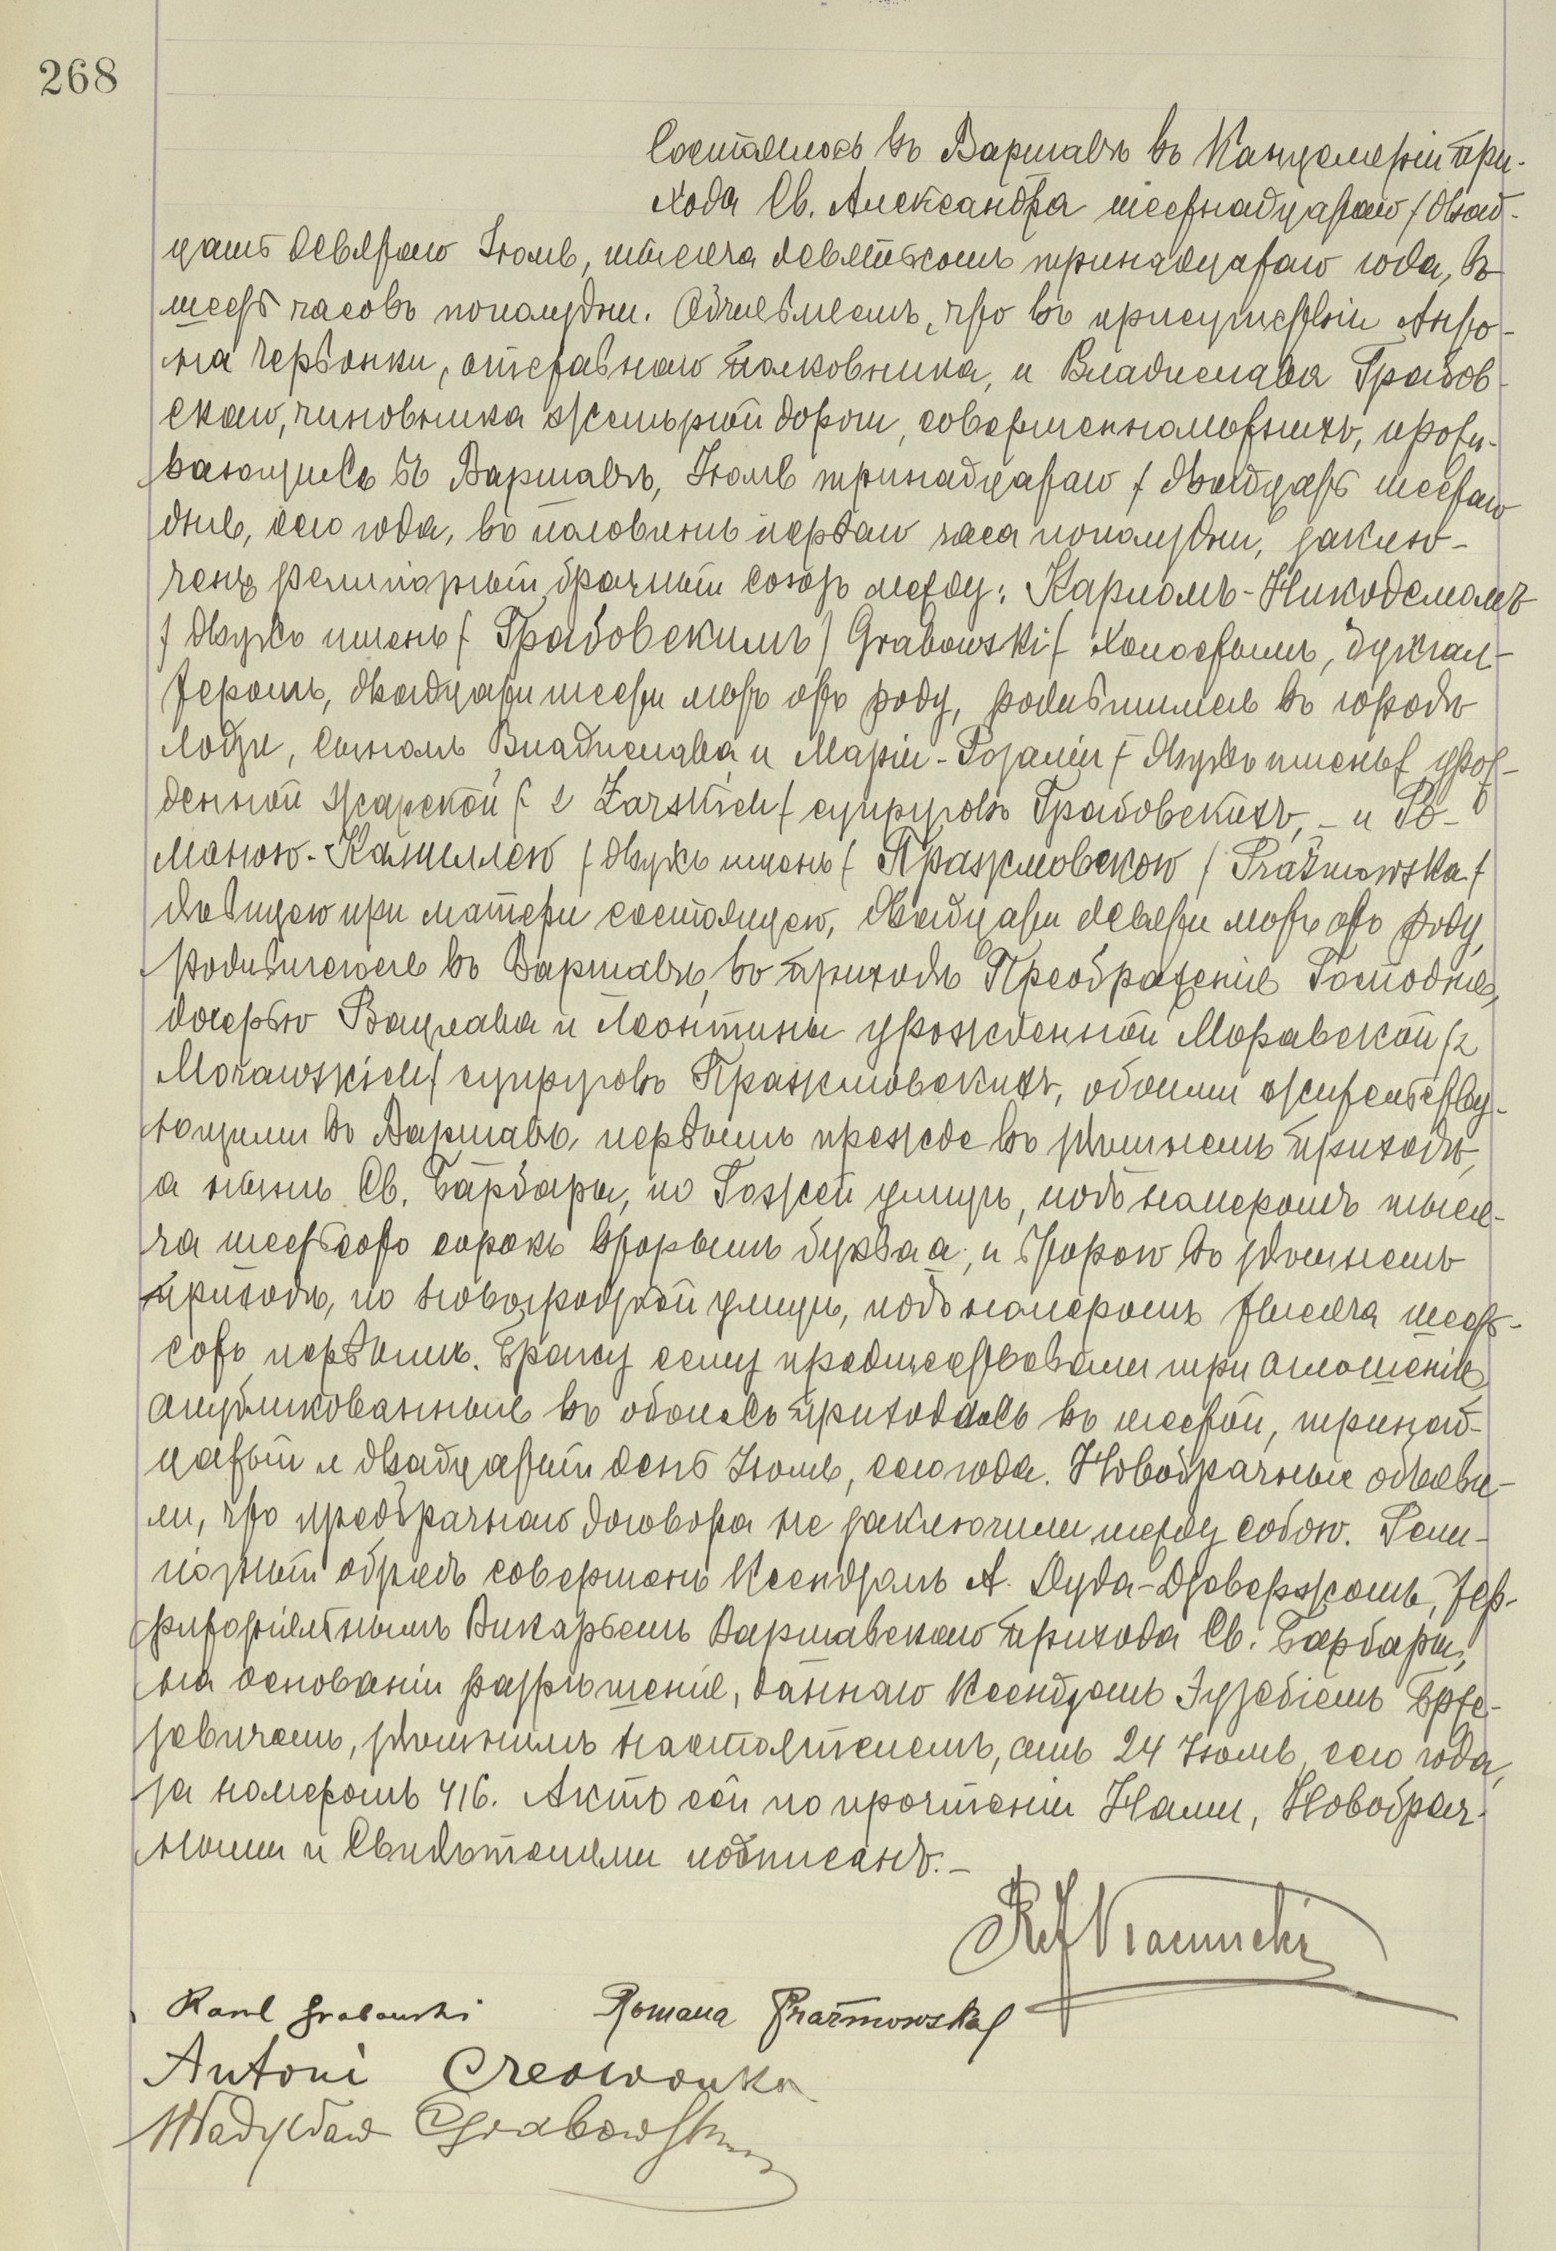 268
Состоялось въ Варшавѣ въ Канцеляріи при-
хода Св. Александра шестнадцатаго / двад-
цать девятаго Іюля, тысяча девятьсотъ тринадцатаго года, въ
шесть часовъ пополудни. Объявляемъ, что въ присутствіи Анто-
на Червонки, отставнаго полковника, и Владислава Грабов-
скаго, чиновника желѣзной дороги, совершеннолѣтнихъ, прожи-
вающихъ въ Варшавѣ, Іюля тринадцатаго / двадцать шестаго
дня, сего года, въ половинѣ перваго часа пополудни, заклю-
ченъ религіозный брачный союзъ между: Карломъ-Никодемомъ
/ двухъ именъ / Грабовскимъ / Grabowski / холостымъ, бухгал-
теромъ, двадцати шести лѣтъ отъ роду, родившимся въ городѣ
Лодзи, сыномъ Владислава и Маріи-Розаліи / двухъ именъ / урож-
денной Жарской / z Żarskich / супруговъ Грабовскихъ, - и Ро-
маною-Камиллею / двухъ именъ / Пражмовскою / Prażmowska /
дѣвицею при матери состоящею, двадцати девяти лѣтъ отъ роду,
родившеюся въ Варшавѣ, въ приходѣ Преображенія Господня,
дочерью Вацлава и Леонтины урожденной Моравской / z
Morawskich / супруговъ Пражмовскихъ, обоими жительству-
ющими въ Варшавѣ, первымъ прежде въ здѣшнемъ приходѣ,
а нынѣ Св. Барбары, по Гожей улицѣ, подъ номеромъ тыся-
ча шестьсотъ сорокъ вторымъ буква а; и второю въ здѣшнемъ
приходѣ, по Новогродзкой улицѣ, подъ номеромъ тысяча шесть-
сотъ первымъ. Браку сему предшествовали три оглашенія,
опубликованныя въ обоихъ приходахъ въ шестой, тринад-
цатый и двадцатый день Іюля, сего года. Новобрачные объяви-
ли, что предбрачнаго договора не заключили между собою. Рели-
гіозный обрядъ совершенъ Ксендзомъ А. Дуда-Дзевержомъ, тер-
риторіяльнымъ Викаріемъ Варшавскаго прихода Св. Барбары,
на основаніи разрѣшенія, даннаго Ксендзомъ Эузебіемъ Брже-
зевичемъ, здѣшнимъ настоятелемъ, отъ 24 Іюля, сего года,
за номеромъ 416. Актъ сей по прочтеніи Нами, Новобрач-
ными и Свидѣтелями подписанъ. -
Karol Grabowski Romana Prażmowska
Antoni Czerwonka
Władysław Grabowski